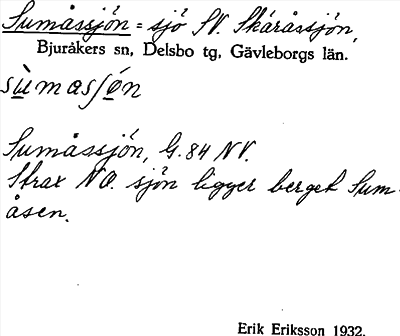 Sumåssjön = sjö SV. Skäråssjön,
Bjuråkers sn, Delsbo tg, Gävleborgs län.
sùmasʃön
Sumåssjön, G. 84 NV.
Strax NO. sjön ligger berget Sum-
åsen.
Erik Eriksson 1932.